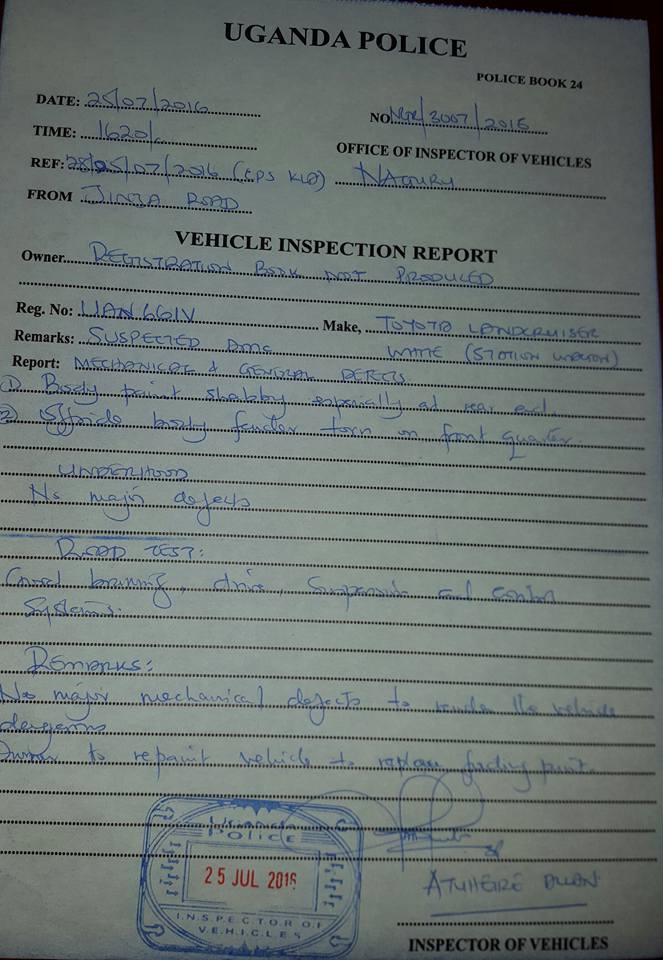 UGANDA POLICE
POLICE BOOK 24
DATE: 25/07/2016
NO
TIME: 1620/c
OFFICE OF INSPECTOR OF VEHICLES
REF: /07/2016 (CPS KLA) NAGURU
FROM JINJA ROAD
VEHICLE INSPECTION REPORT
Owner REGISTRATION BOOK NOT PRODUCED
Reg. No: UAN 661V Make, TOYOTA LANDCRUISER
Remarks: SUSPECTED DMC WHITE (STATION WAGON)
Report: MECHANICAL & GENERAL DEFECTS
① Body paint shabby especially at rear end.
② Offside body fender torn on front quarter.
UNDERHOOD
No major defects
ROAD TEST:
Good , drive, suspension and control
systems.
REMARKS:
No major mechanical defects to render the vehicle
dangerous
Owner to repaint vehicle to replace fading paint.
POLICE
25 JUL 2016
INSPECTOR OF
VEHICLES
ATUHEIRE
INSPECTOR OF VEHICLES